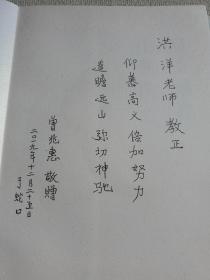 洪洋老师 教正
仰慕高义 倍加努力
遥瞻远山 弥切神驰
曾兆惠 敬赠
二〇一九年十二月二十五日
于蛇口